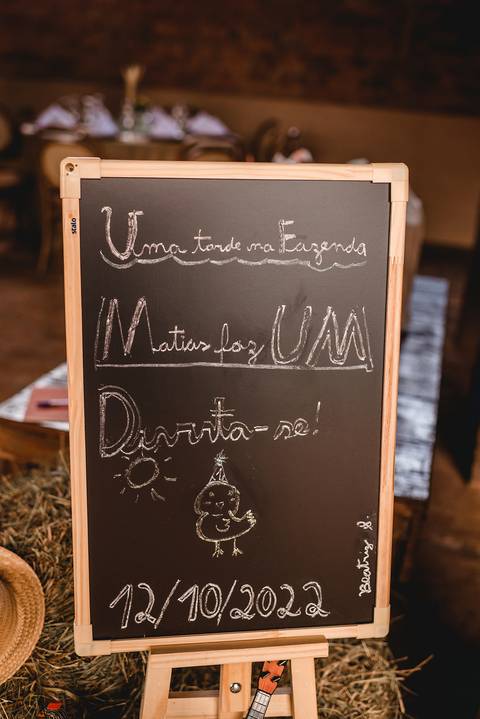 stalo
Uma tarde na Fazenda
Matias faz UM
Divirta-se!
12/10/2022
Beatriz S.